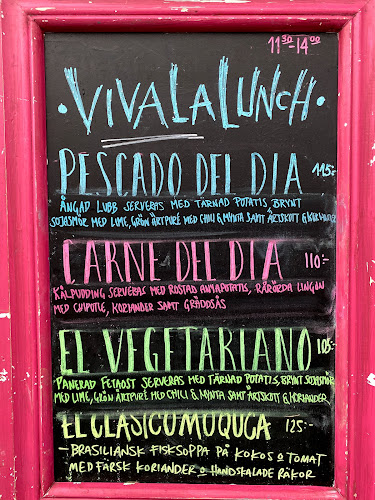 11³⁰-14⁰⁰
·VIVA LA LUNCH·
PESCADO DEL DIA 115:-
ÅNGAD LUBB SERVERAS MED TÄRNAD POTATIS, BRYNT
SOJASMÖR MED LIME, GRÖN ÄRTPURÉ MED CHILI & MYNTA SAMT ÄRTSKOTT & KORIANDER
CARNE DEL DIA 110:-
KÅLPUDDING SERVERAS MED ROSTAD AMAPOTATIS, RÅRÖRDA LINGON
MED CHIPOTLE, KORIANDER SAMT GRÄDDSÅS
EL VEGETARIANO 105:-
PANERAD FETAOST SERVERAS MED TÄRNAD POTATIS, BRYNT SOJASMÖR
MED LIME, GRÖN ÄRTPURÉ MED CHILI & MYNTA SAMT ÄRTSKOTT & KORIANDER
EL CLASICO MOQUCA 125:-
- BRASILIANSK FISKSOPPA PÅ KOKOS O TOMAT
MED FÄRSK KORIANDER O HANDSKALADE RÄKOR